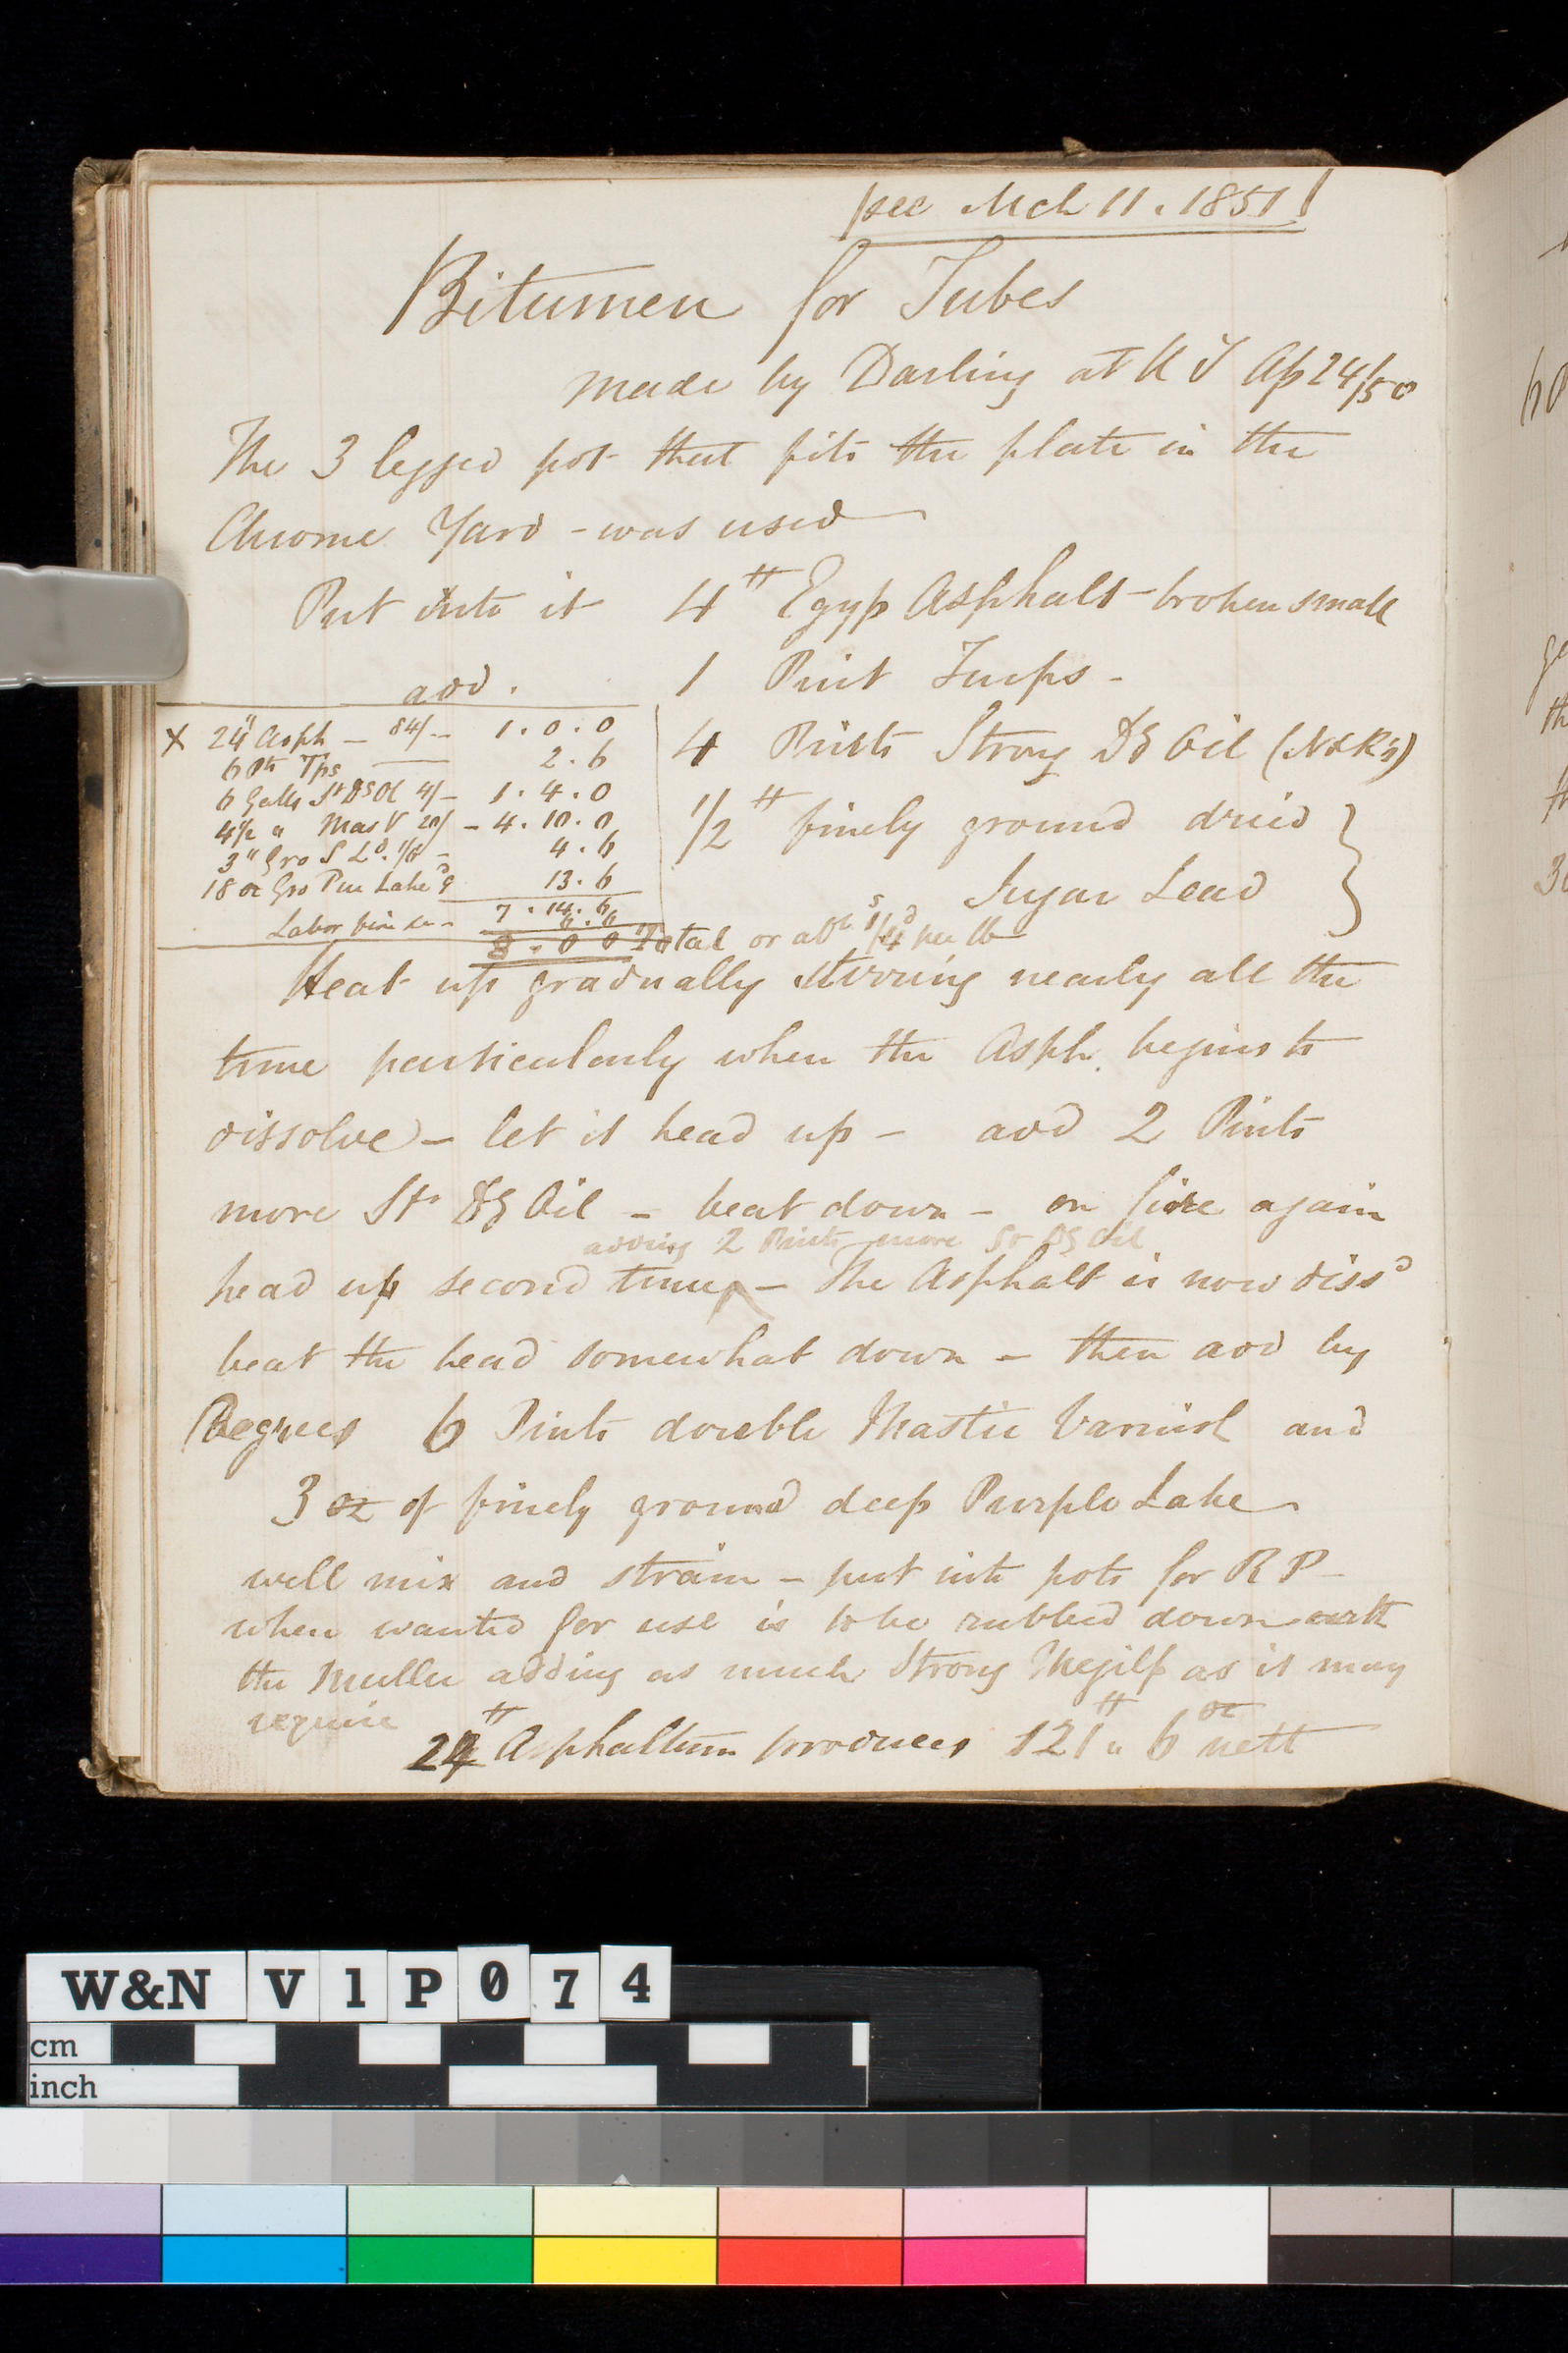 see Mch 11. 1851
Bitumen for Tubes
made by Darling at K T Ap 24/50
The 3 legged pot that fits the plate in the
Chrome Yard - was used
Put into it 4 ℔ Egyp Asphalt - broken small
add. 1 Pint Turps -
4 Pints Strong DG Oil (N&R's)
1/2 ℔ finely ground dried
Sugar Lead
X 24" Asph - 84/- 1.0.0
6 Pts Tps 2.6
6 Galls St DG Ol 4/- 1.4.0
4 1/2 " Mas V 20/- 4.10.0
3" Gro S Ld. 1/6 - 4.6
18 oz Gro Pur Lake 9d 13.6
7.14.6
Labor fire &c - 5.6
8.0 0 Total or abt 1s/4d per lb
Heat up gradually stirring nearly all the
time particularly when the Asph. begins to
dissolve - let it head up - add 2 Pints
more St DG Oil - beat down - on fire again
adding 2 Pints more St DG Oil
head up second time - The Asphalt is now dissd
beat the head somewhat down - then add by
Degrees 6 Pints double Mastic Varnish and
3 oz of finely ground deep Purple Lake
well mix and strain - put into pots for R P -
when wanted for use is to be rubbed down with
the Muller adding as much Strong Megilp as it may
require
24 ℔ Asphaltum produces 121 ℔ " 6 oz nett
W&N V1P074
cm
inch